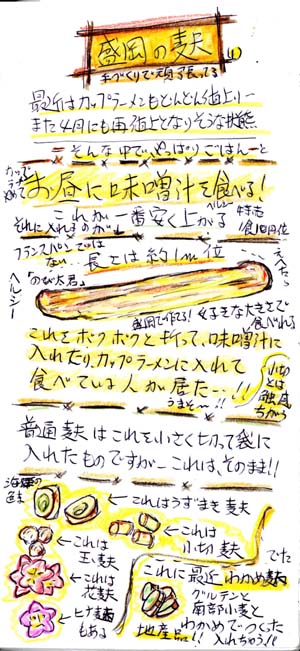 盛岡の麸
手づくりで頑張ってる
最近はカップラーメンもどんどん値上り
また4月にも再値上となりそうな状態
=そんな中で、やっぱりごはんーと
お昼に味噌汁を食べる!
これが一番安く上がる
ヘルシー
それに入れるのが
フランスパンでは
ない…
長さは約1m位
「のび太君」
ヘルシー
盛岡で作てる!
好きな大きさで
食べれる
これをボクボクと折って、味噌汁に
入れたり、カップラーメンに入れて
食べている人が居た…!!
うまそ〜!!
小切
とは
触感
ちがう
普通麸はこれを、小さく切って袋に
入れたものですが、これは、そのまま!!
←これはうずまき麸
←これは
小切麸
←これは
玉麸
←これは
花麸
ヒナ麸
もある
でた
これに最近わかめ麸
グルテンと
南部小麦と
わかめでつくった
地産品!!
入れちゃう!!